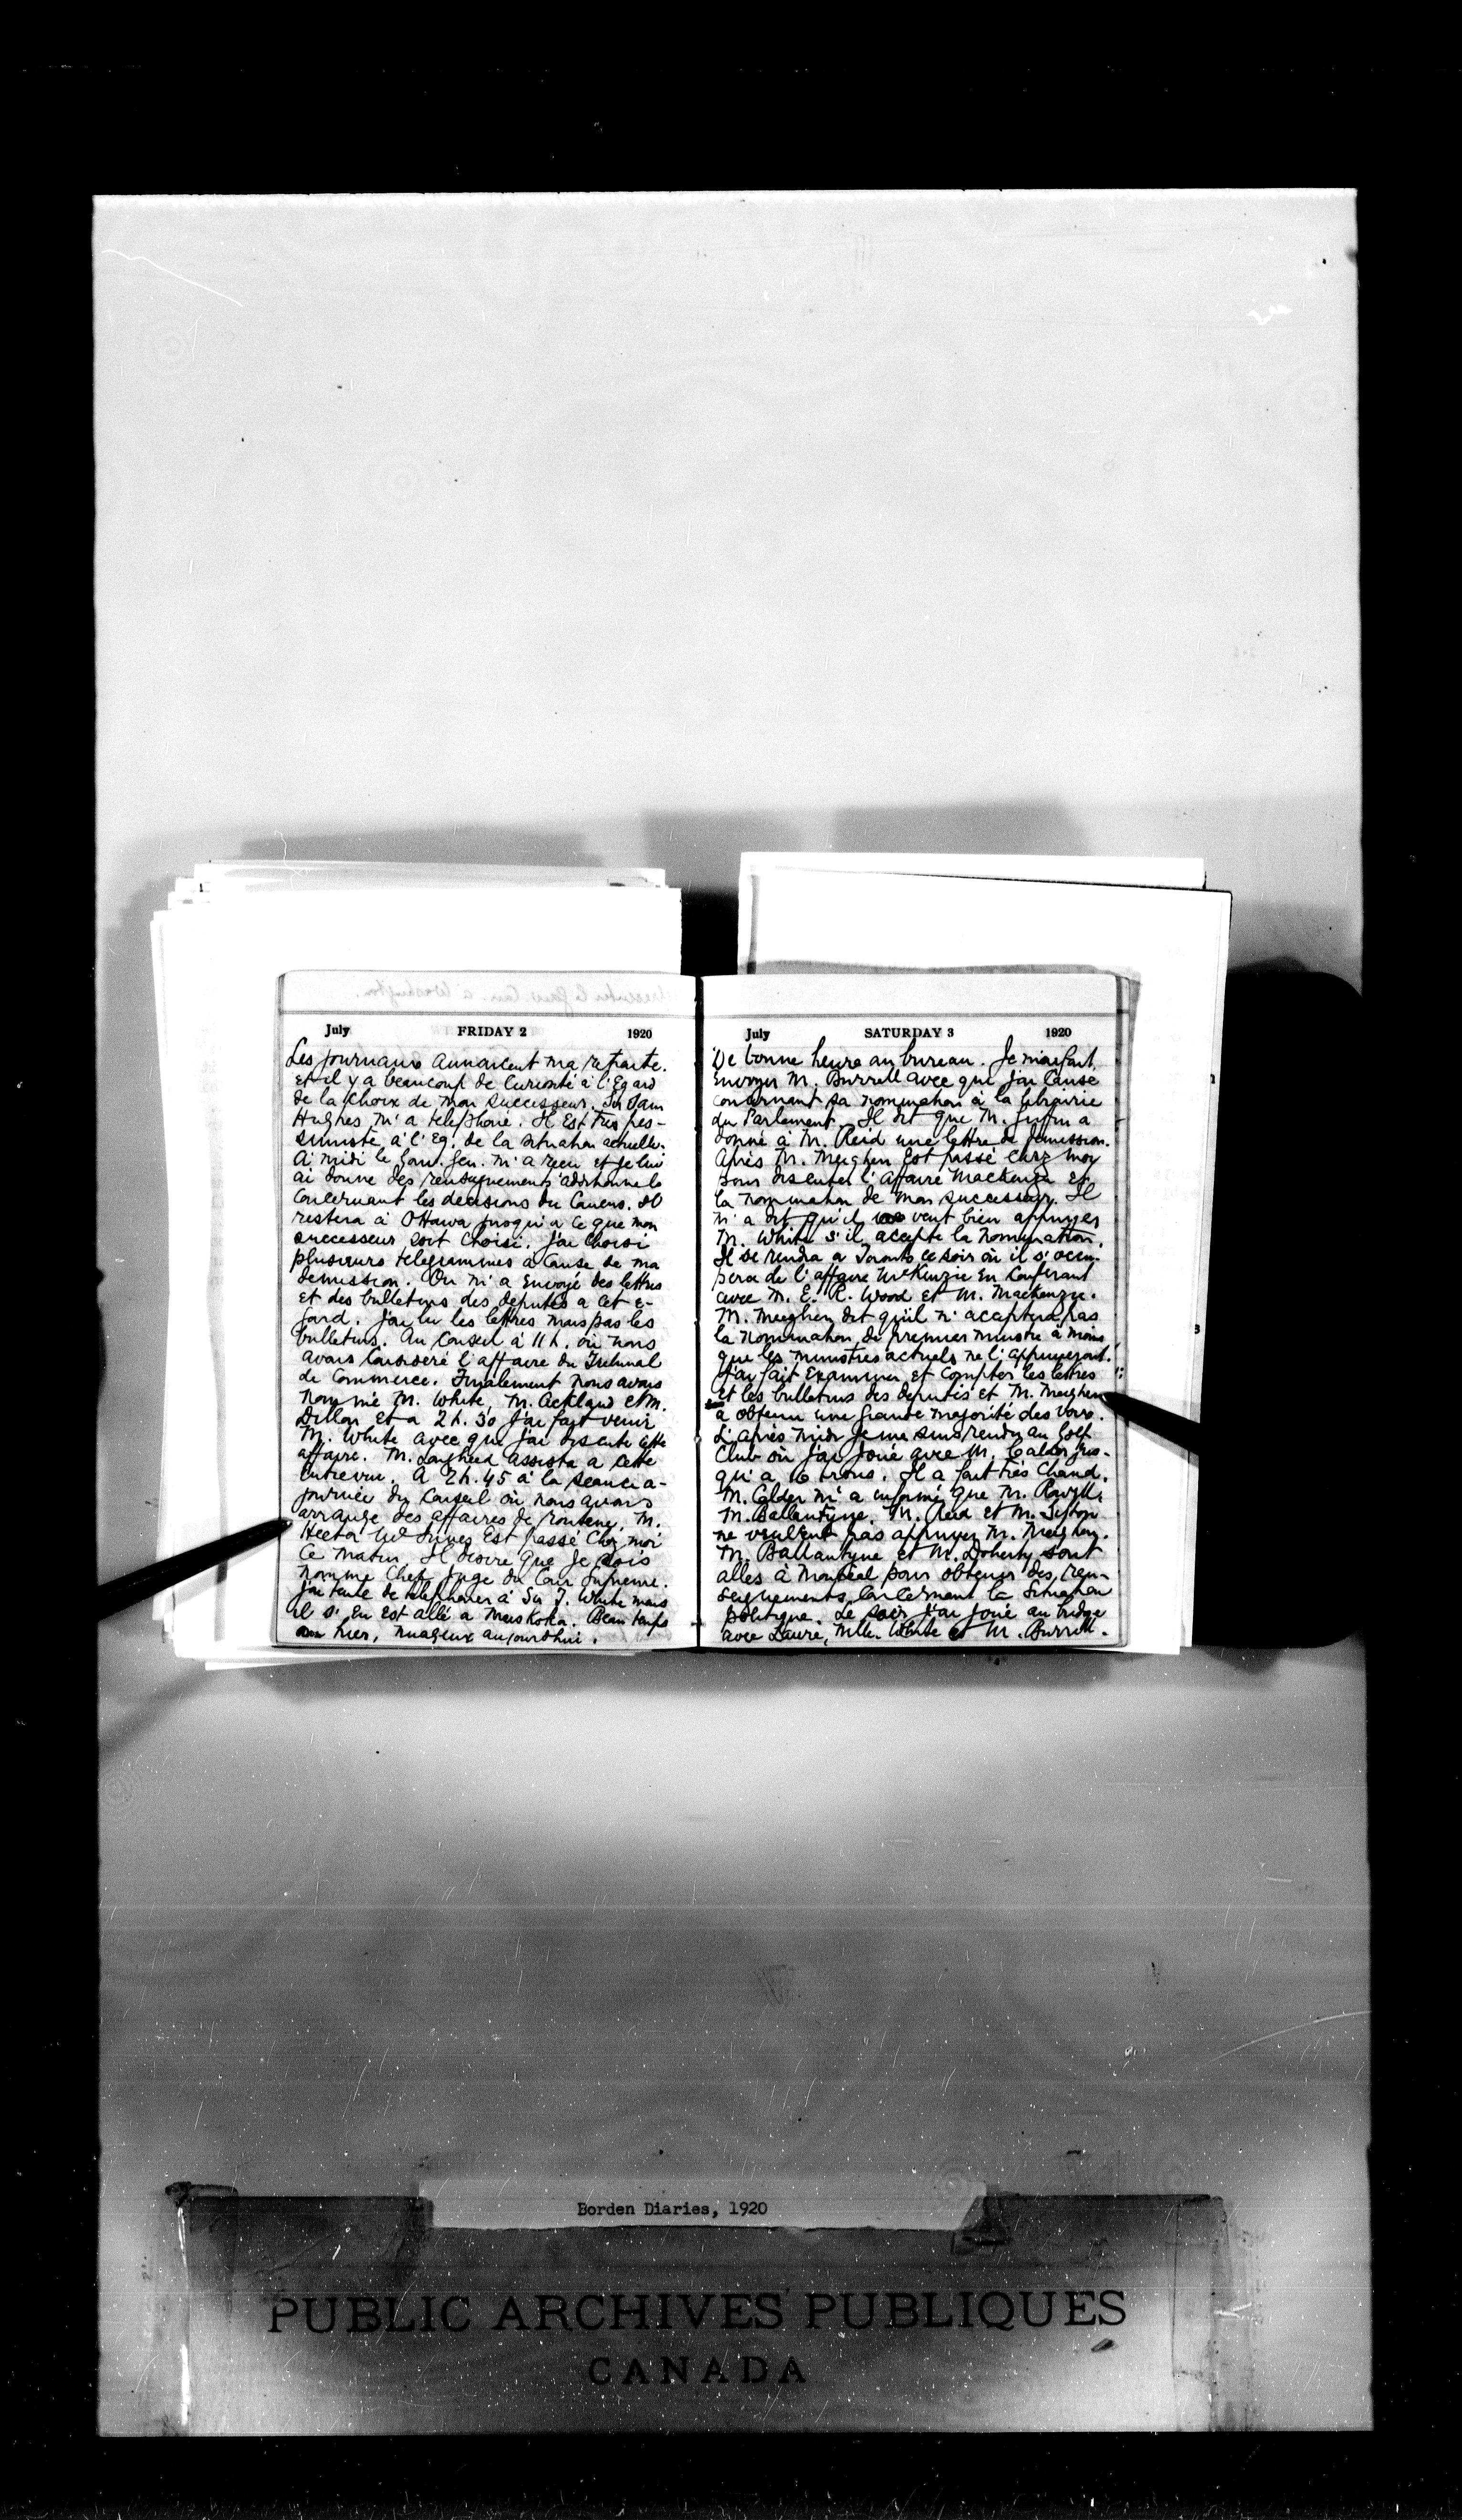 July FRIDAY 2 1920
Les journaux annoncent ma retraite.
et il y a beaucoup de curiosité à l'égard
de la choix de mon successeur. Sir Sam
Hughes m'a telephoné. Il est très pes-
simiste à l'eg. de la situation actuelle.
A midi le Gouv. Gen. m'a recu et je lui
ai donne des renseignements additionnels
concernant les decisions du Caucus. Il
restera à Ottawa jusqu'a ce que mon
successeur soit choisi. J'ai
plusieurs telegrammes a cause de ma
demission. On m'a envoyé des lettres
et des bulletins des deputés a cet e-
gard. J'ai lu les lettres mais pas les
bulletins. Au Conseil à 11 h. où nous
avons consideré l'affaire du Tribunal
de Commerce. Finalement nous avons
nommé M. White, M. Ackland et M.
Dillon et a 2 h. 30 j'ai fait venir
M. White avec qui j'ai discuté cette
affaire. M. Lougheed assista a cette
entrevue. A 2 h. 45 à la seance a-
journée du Conseil où nous avons
arrangé des affaires de routene. M.
Hector McInnes est passé chez moi
ce matin. Il desire que je sois
nommé Chef Juge du Cour Supreme.
J'ai tenté de telephoner à Sir T. White mais
il s'en est allé a Muskoka. Beau temps
hier, nuageux aujourdhui.
July SATURDAY 3 1920
De bonne heure au bureau. Je
envoyer M. Burrell avec qui j'ai causé
concernant sa nomination à la librairie
du Parlement. Il dit que M. Griffin a
donné à M. Reid une lettre de demission.
Après M. Meighen est passé chez moi
pour discuter l'affaire Mackenzie et
la nomination de mon successeur. Il
m'a dit qu'il veut bien appuyer
M. White s'il accepte la nomination.
Il se rendra a Toronto ce soir où il s'occu-
pera de l'affaire McKenzie en conferant
avec M. E. R. Wood et M. Mackenzie.
M. Meighen dit qu'il n'acceptera pas
la nomination de premier ministre à moins
que les ministres actuels ne l'appuyerait.
J'ai fait examiner et compter les lettres
et les bulletins des deputés et M. Meighen
a obtenu une grande majorité des voix.
L'après midi je me suis rendu au Golf
Club où j'ai joué avec M. Calder jus-
qu'a 16 trous. Il a fait très chaud.
M. Calder m'a informé que M. Rowell,
M. Ballantyne, M. Reid et M. Sifton
ne veulent pas appuyer M. Meighen.
M. Ballantyne et M. Doherty sont
allés à Montréal pour obtenir des ren-
seignements concernant la situation
politique. Le soir j'ai joué au bridge
avec Laura, Mlle. White et M. Burrell.
Borden Diaries, 1920
PUBLIC ARCHIVES PUBLIQUES
CANADA